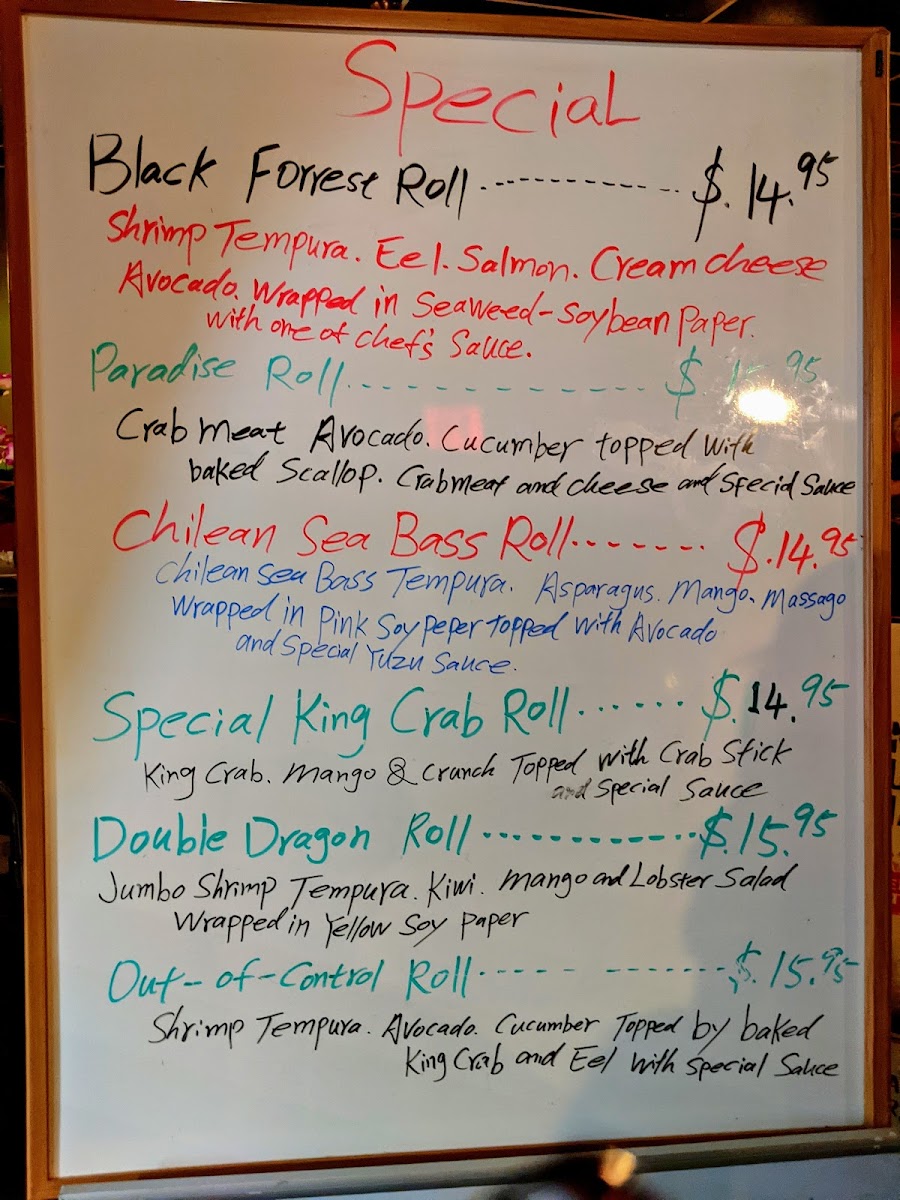 Special
Black Forrest Roll ............ $.14.95
Shrimp Tempura. Eel. Salmon. Cream cheese
Avocado. Wrapped in Seaweed-Soybean paper.
with one of chef's Sauce.
Paradise Roll ............ $ 95
Crab meat Avocado. Cucumber topped with
baked Scallop. Crabmeat and cheese and Specid Sauce
Chilean Sea Bass Roll....... $.14.95
Chilean Sea Bass Tempura. Asparagus. Mango. Massago
Wrapped in Pink Soy peper topped with Avocado
and Special Yuzu Sauce.
Special King Crab Roll ...... $.14.95
King Crab. Mango & Crunch Topped with Crab Stick
and Special Sauce
Double Dragon Roll ............ $.15.95
Jumbo Shrimp Tempura. Kiwi. Mango and Lobster Salad
Wrapped in Yellow Soy paper
Out-of-Control Roll ............ $.15.95
Shrimp Tempura. Avocado. Cucumber Topped by baked
King Crab and Eel with Special Sauce